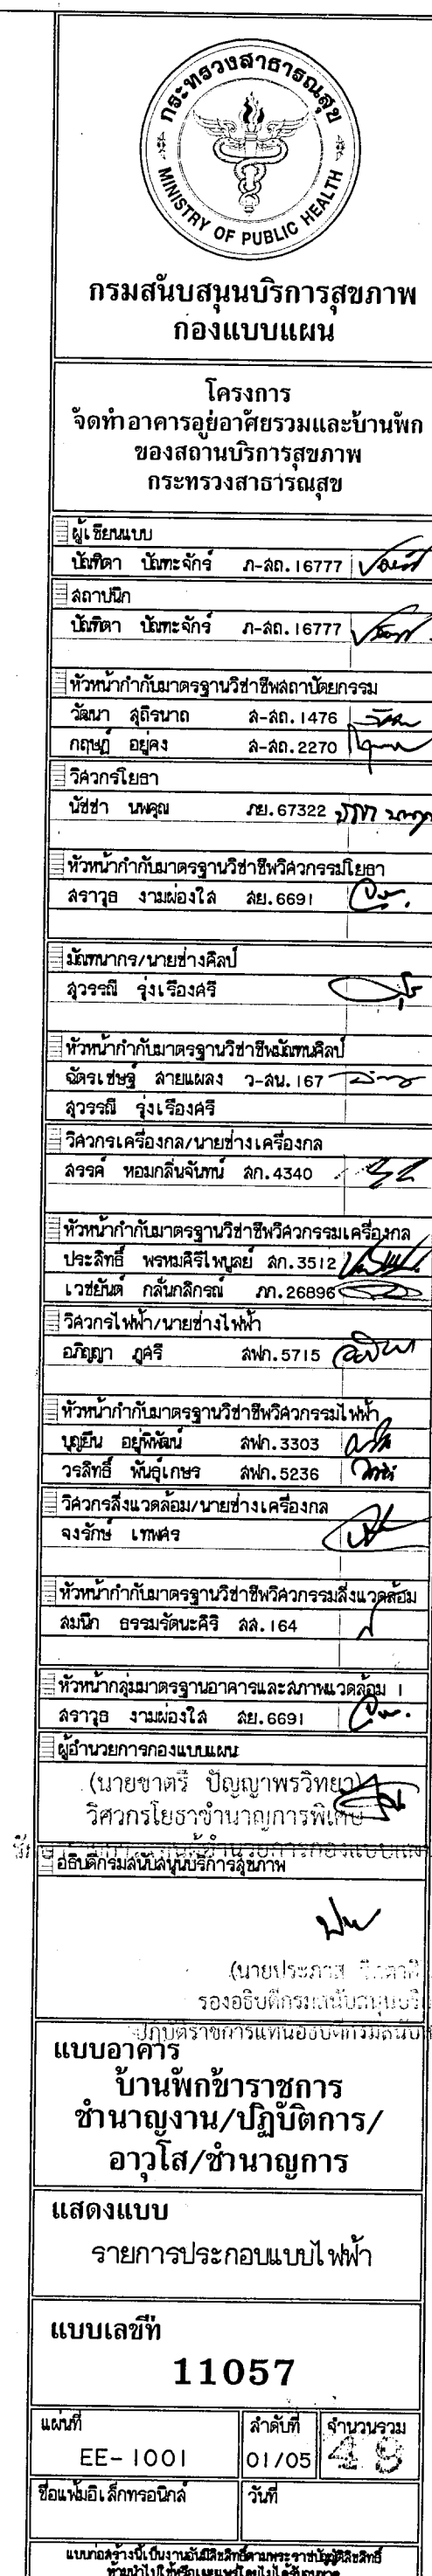 กระทรวงสาธารณสุข
MINISTRY OF PUBLIC HEALTH
กรมสนับสนุนบริการสุขภาพ
กองแบบแผน
โครงการ
จัดทำอาคารอยู่อาศัยรวมและบ้านพัก
ของสถานบริการสุขภาพ
กระทรวงสาธารณสุข
ผู้เขียนแบบ
บัณฑิตา บัณฑะจักร์ ภ-สถ.16777
สถาปนิก
บัณฑิตา บัณฑะจักร์ ภ-สถ.16777
หัวหน้ากำกับมาตรฐานวิชาชีพสถาปัตยกรรม
วัฒนา สุถิรนาถ ส-สถ.1476
กฤษฎ์ อยู่คง ส-สถ.2270
วิศวกรโยธา
นัชชา นพคุณ ภย.67322
หัวหน้ากำกับมาตรฐานวิชาชีพวิศวกรรมโยธา
สราวุธ งามผ่องใส สย.6691
มัณฑนากร/นายช่างศิลป์
สุวรรณี รุ่งเรืองศรี
หัวหน้ากำกับมาตรฐานวิชาชีพมัณฑนศิลป์
ฉัตรเชษฐ์ สายแผลง ว-สน.167
สุวรรณี รุ่งเรืองศรี
วิศวกรเครื่องกล/นายช่างเครื่องกล
สรรค์ หอมกลิ่นจันทน์ สก.4340
หัวหน้ากำกับมาตรฐานวิชาชีพวิศวกรรมเครื่องกล
ประสิทธิ์ พรหมคิรีไพบูลย์ สก.3512
เวชยันต์ กลั่นกสิกรณ์ ภก.26896
วิศวกรไฟฟ้า/นายช่างไฟฟ้า
อภิญญา ภูศรี สฟก.5715
หัวหน้ากำกับมาตรฐานวิชาชีพวิศวกรรมไฟฟ้า
บุญยืน อยู่พิพัฒน์ สฟก.3303
วรสิทธิ์ พันธุ์เกษร สฟก.5236
วิศวกรสิ่งแวดล้อม/นายช่างเครื่องกล
จงรักษ์ เทพศร
หัวหน้ากำกับมาตรฐานวิชาชีพวิศวกรรมสิ่งแวดล้อม
สมนึก ธรรมรัตนะคิริ สส.164
หัวหน้ากลุ่มมาตรฐานอาคารและสภาพแวดล้อม 1
สราวุธ งามผ่องใส สย.6691
ผู้อำนวยการกองแบบแผน
(นายชาตรี ปัญญาพรวิทยา)
วิศวกรโยธาชำนาญการพิเศษ
อธิบดีกรมสนับสนุนบริการสุขภาพ
(นายประภาส
รองอธิบดีกรมสนับสนุนบริ
ปฏิบัติราชการแทนอธิบดีกรมสนับ
แบบอาคาร
บ้านพักข้าราชการ
ชำนาญงาน/ปฏิบัติการ/
อาวุโส/ชำนาญการ
แสดงแบบ
รายการประกอบแบบไฟฟ้า
แบบเลขที่
11057
แผ่นที่ ลำดับที่ จำนวนรวม
EE-1001 01/05 48
ชื่อแฟ้มอิเล็กทรอนิกส์ วันที่
แบบก่อสร้างนี้เป็นงานอันมีลิขสิทธิ์ตามพระราชบัญญัติลิขสิทธิ์